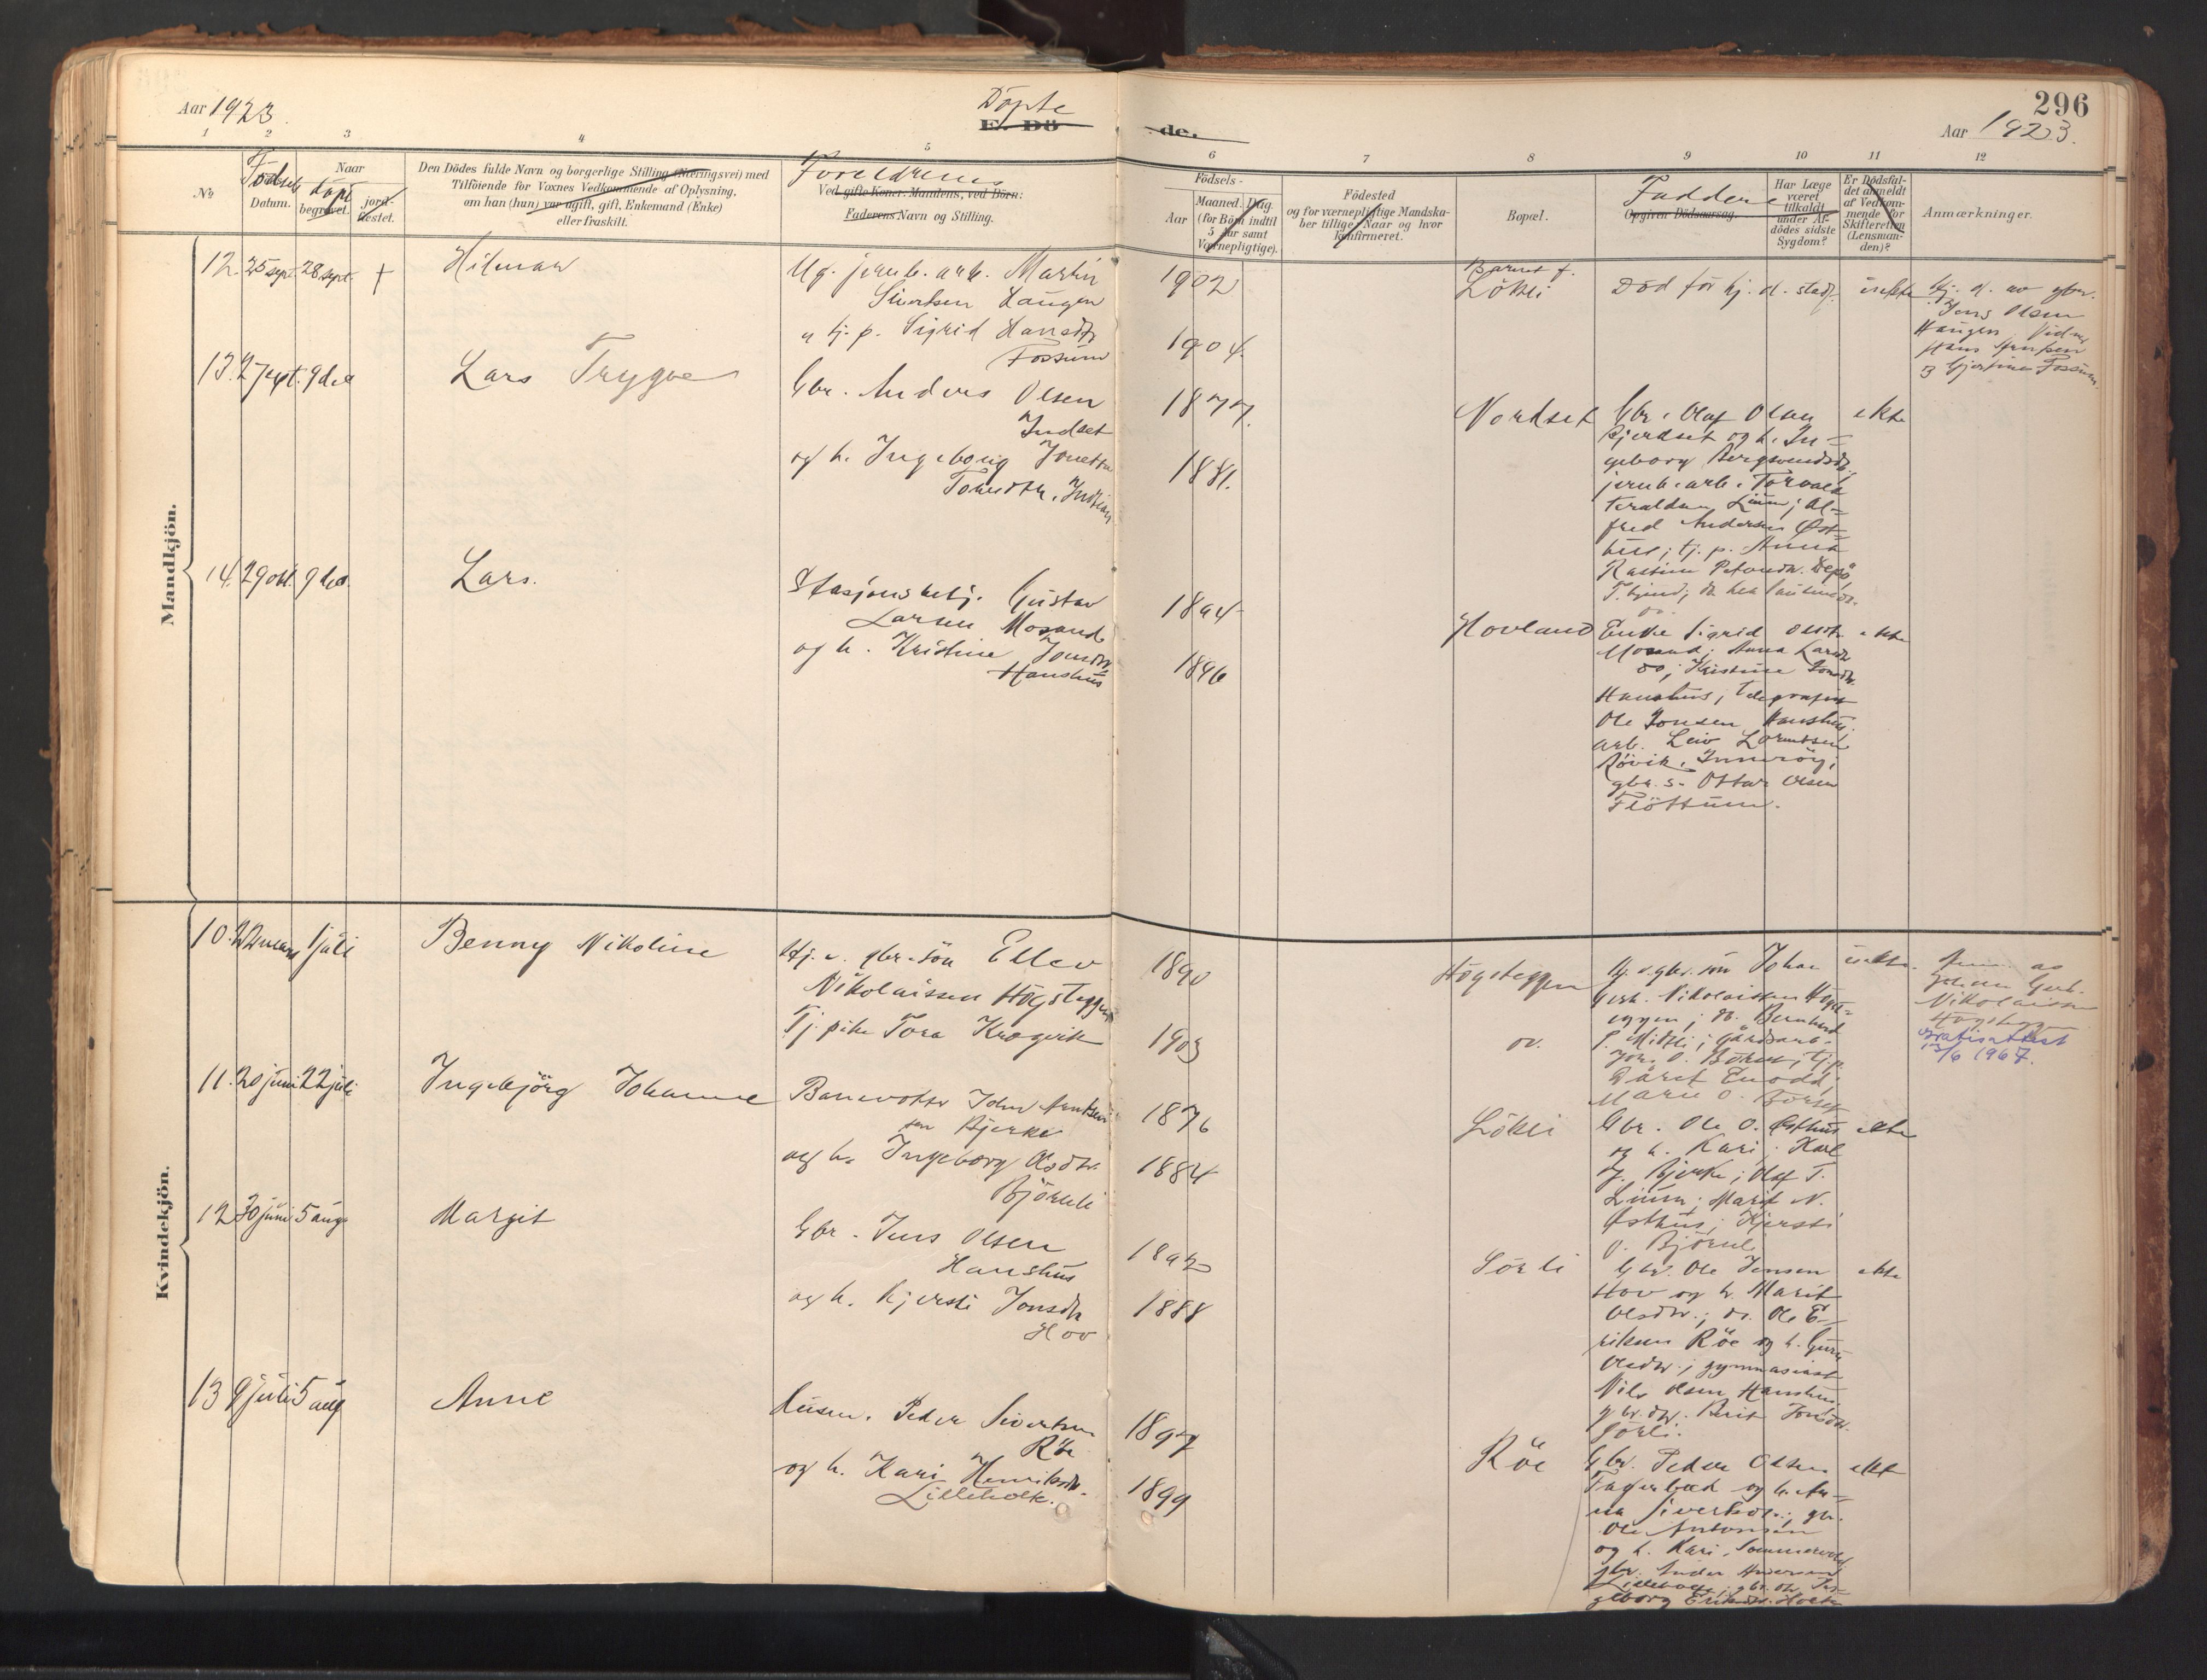 296
Aar 1923.
Döpte
E. Dö
de.
Aar 1923.
1
2
3
4
5
6
7
8
9
10
11
12
No
Födsels
Datum.
Naar
döpt
begravet.
jord-
fæstet.
Den Dödes fulde Navn og borgerlige Stilling (Næringsvei) med
Tilföiende for Voxnes Vedkommende af Oplysning,
om han (hun) var ugift, gift, Enkemand (Enke)
eller fraskilt.
Foreldrenes
Ved gifte Koner: Mandens, ved Börn:
Faderens Navn og Stilling.
Födsels-
Aar
Maaned. Dag.
(for Börn indtil
5 Aar samt
Værnepligtige).
Födested
og for værnepligtige Mandska-
ber tillige Naar og hvor
Konfirmeret.
Bopæl.
Faddere
Opgiven Dödsaarsag.
Har Læge
været
tilkaldt
under Af-
dödes sidste
Sygdom?
Er Dödsfal-
det anmeldt
af Vedkom-
mende for
Skifteretten
(Lensman-
den)?
Anmærkninger.
Mandkjön.
12. 25 sept. 28 sept. +
Hilmar
Ug. jernb. arb. Martin
Sivertsen Haugen
og tj. p. Sigrid Hansdtr
Fossum
1902
1904.
Barnet f.
Lökli
Död för hj. d. stadf.
uekte
Hj. d. av gbr.
Jens Olsen
Haugen. Vidner
Fossum.
13. 27 sept. 9 des
Lars Trygve
Gbr. Anders Olsen
Indset
og h. Ingeborg
1877.
1881.
Nordset
Gbr. Olaf Olsen
og h. In-
geborg Bergsvendsdtr;
jernb. arb. Torvald
Lium; Al-
fred Andersen Øst-
hus; tj. p. Anna
ekte
14. 29 okt. 9 des.
Lars.
Stasjonsbetj. Gustav
Larsen Mosand
og h. Kristine Jonsdtr
Hanshus
1894
1896
Hovland
Enke Sigrid Olsdtr
Mosand; Anna Larsdtr
do; Kristine Jonsdtr
Hanshus; telegrafist
Ole Jonsen Hanshus.
arb. Leiv Lorentsen
Røvik, Inderöy;
gbr. s. Ottar Olsen
Flöttum.
ekte
Kvindekjön.
10. 22 mars 1 juli
Benny Nikoline
Hj. v. gbr. sön Ellev
Nikolaissen Högsteggen
Tj. pike Tora Krogvik
1890
1903
Högsteggen
do.
Hj. v. gbr. sön Johan
Gerh. Nikolaissen Högst-
eggen; do. Bernhard
P. Midtli; Gårdsarb.
Marie O. Borset
uekte.
Johan Gerh.
Nikolaissen
Högsteggen
Gratisattest
13/6 1967.
11. 20 juni 22 juli
Ingebjörg Johanne
Banevokter John Arntsen
Bjerke
og h. Ingeborg Olsdtr.
Björnli
1876
1884
Lökli
Gbr. Ole O. Østhus
og h. Kari; Karl
J. Bjerke; Olaf T.
Lium; Marit N.
Østhus; Kjersti
O. Björnli
ekte
12 30 juni 5 aug
Margit
Gbr. Jens Olsen
Hanshus
og h. Kjersti Jonsdtr
Hov
1892
1888
Sörli
Gbr. Ole Jensen
Hov og h. Marit
Olsdtr.; do. Ole E-
riksen Röe og h. Guru
Olsdtr.; gymnasiast
Nils Olsen Hanshus.
gbr. dtr. Berit Jonsdtr.
Sörli.
ekte
13 9 juli 5 aug
Anne
Husm. Peder Sivertsen
Röe
og h. Kari Henriksdtr.
Lillebolk.
1897
1899
Röe
Gbr. Peder Olsen
og h. An-
na Sivertsdtr.; gbr.
Ole Antonsen
og h. Kari, Sommervold
gbr. Andersen
gbr. dtr. In-
geborg Eriksdtr. Holte
ekte